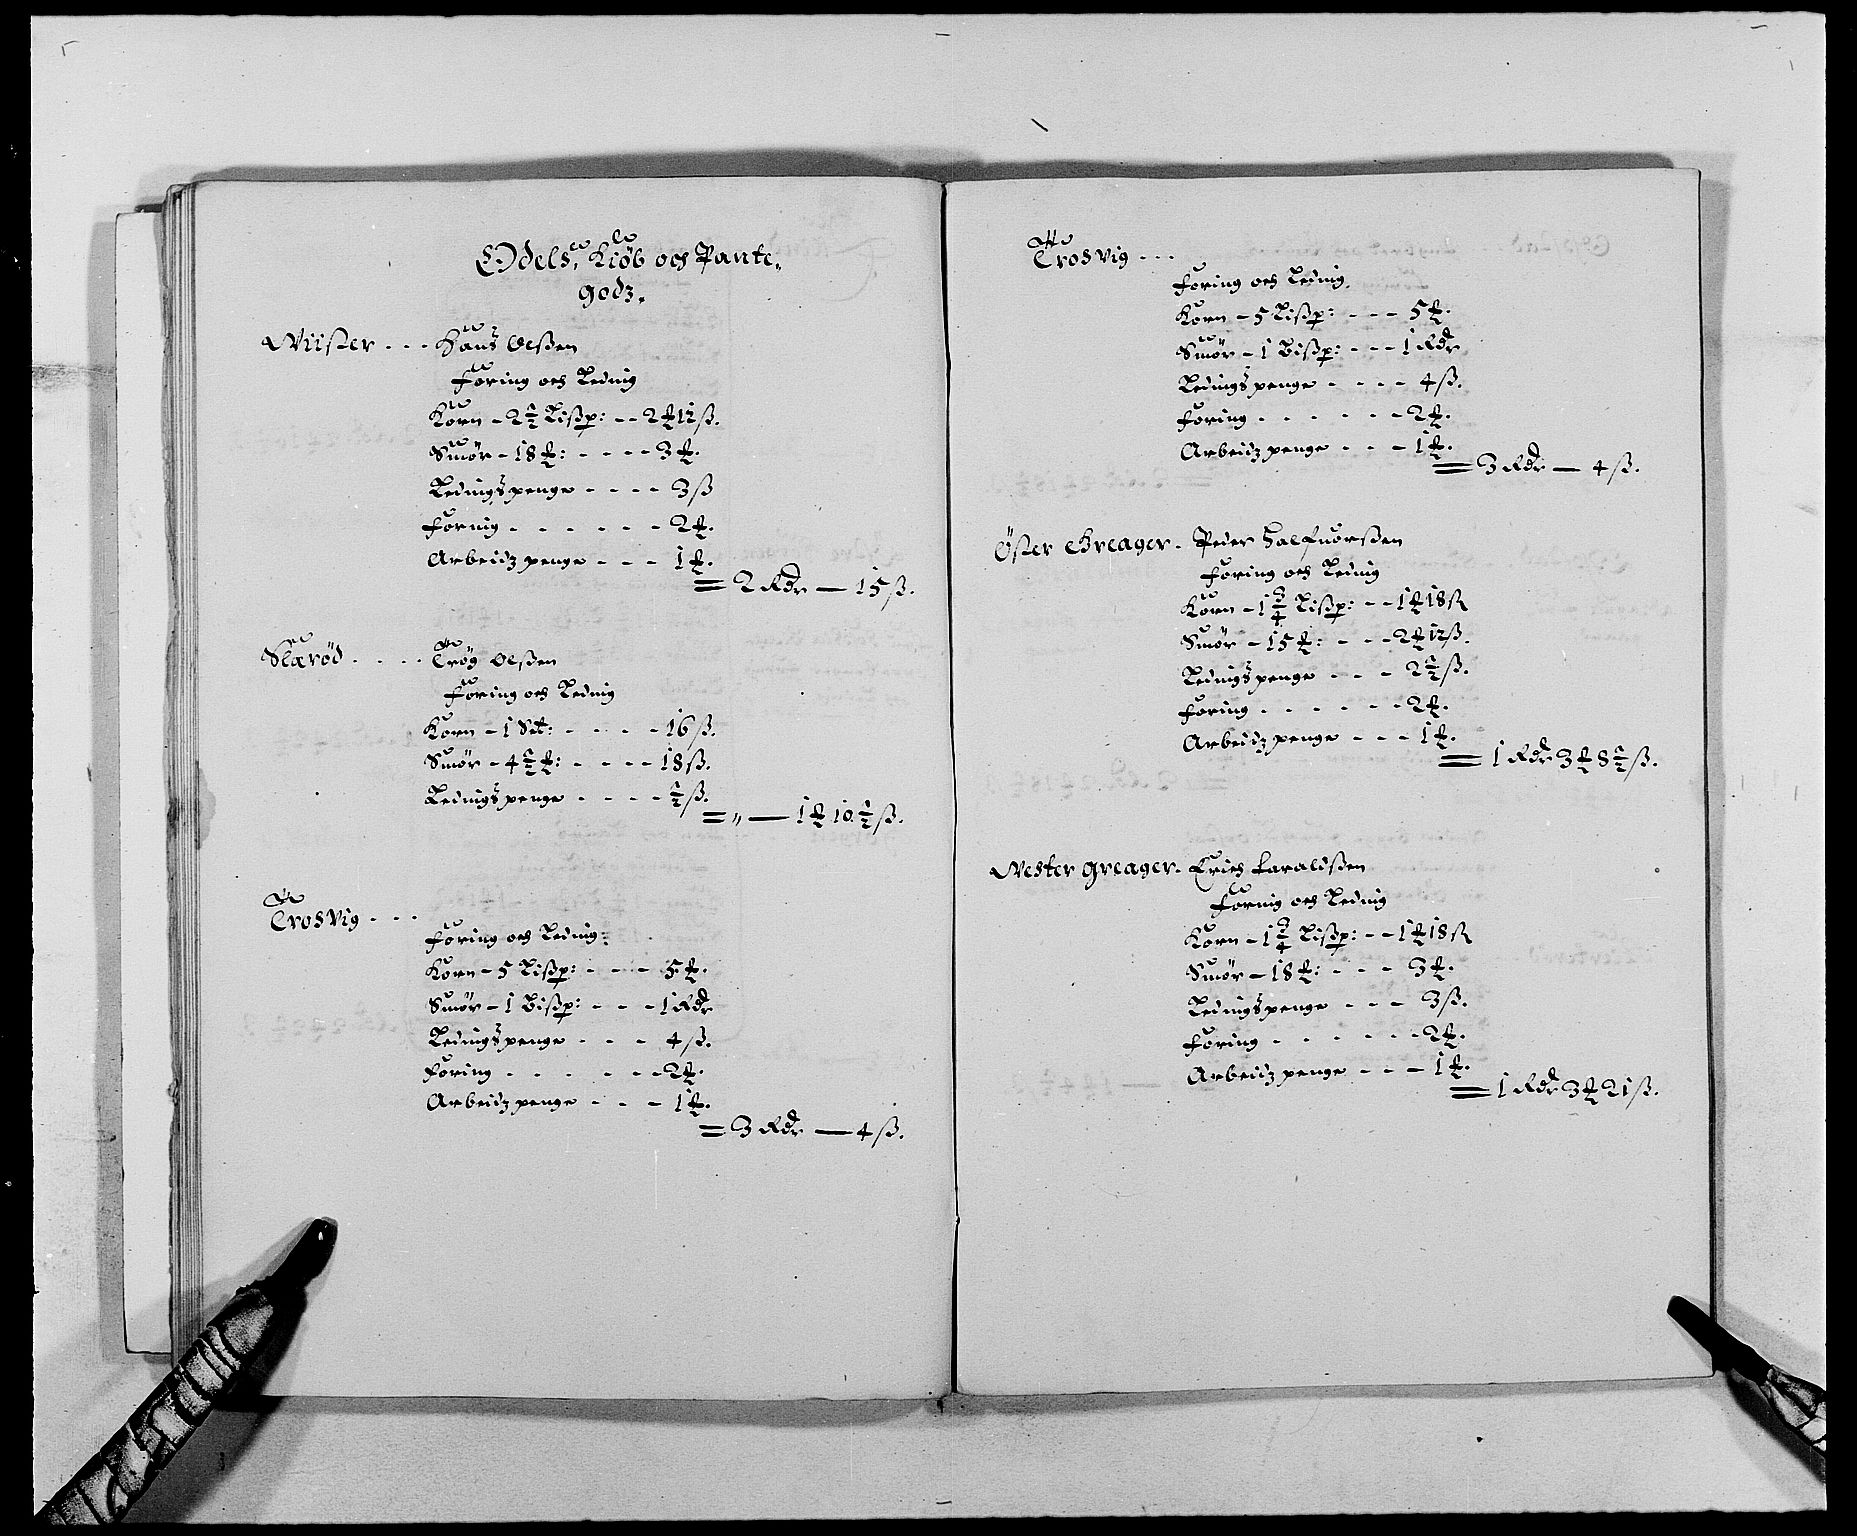 Odels, Kiøb och Pante,
godz.
Wiister - - - Hans Olßen
Foring och Leding
Korn - 2½ Lißp: - - 2 ₰ 12 ß.
Smør - 18 ₰: - - - - 3 ₰.
Ledingspenge - - - - 3 ß
Foring - - - - - - 2 ₰.
Arbeidz penge - - - 1 ₰.
= 2 Rdr — 15 ß.
Slærød - - - - Trøg Olßen
Foring och Leding
Korn - 1 Set: - - - - 16 ß.
Smør - 4½ ₰: - - - - 18 ß.
Ledingspenge - - - - ½ ß.
= „ — 1 ₰ 10½ ß.
Trosvig - - -
Foring och Leding:
Korn - 5 Lißp: - - - 5 ₰.
Smør - 1 Bißp: - - - 1 Rdr
Ledingspenge - - - 4 ß.
Foring - - - - - - 2 ₰.
Arbeidz penge - - - 1 ₰.
= 3 Rdr — 4 ß.
Trosvig - - -
Foring och Leding.
Korn - 5 Lißp: - - - 5 ₰.
Smør - 1 Bißp: - - - 1 Rdr
Ledingspenge - - - - 4 ß.
Foring - - - - - - 2 ₰.
Arbeidz penge - - - 1 ₰.
= 3 Rdr — 4 ß.
Øster Greager. Peder Halfuorßen
Foring och Leding
Korn - 1¾ Lißp: - - 1 ₰ 18 ß
Smør - 15 ₰: - - - 2 ₰ 12 ß.
Ledingspenge - - - 2½ ß.
Foring - - - - - - 2 ₰.
Arbeidz penge - - - 1 ₰.
= 1 Rdr 3 ₰ 8½ ß.
Wester Greager. Erich Taraldßen
Foring och Leding
Korn - 1¾ Lißp: - - 1 ₰ 18 ß
Smør - 18 ₰: - - - 3 ₰.
Ledingspenge - - - 3 ß.
Foring - - - - - - 2 ₰.
Arbeidz penge - - - 1 ₰.
= 1 Rdr 3 ₰ 21 ß.